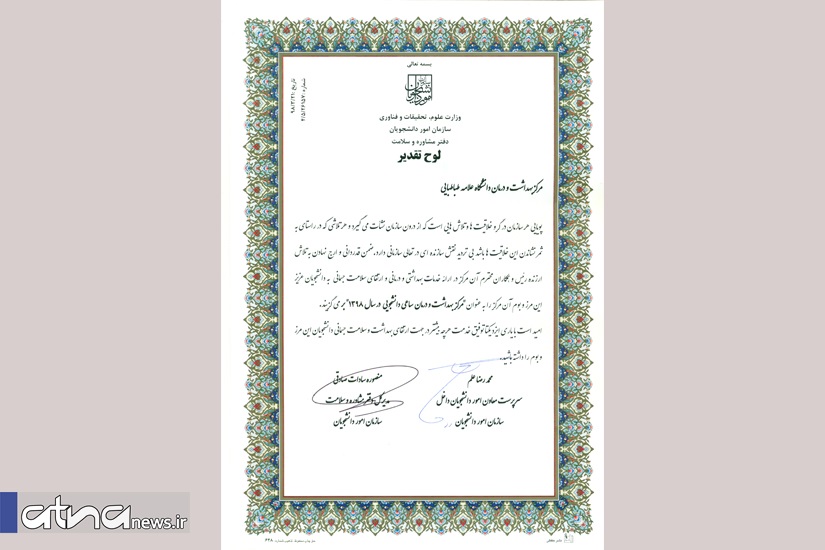 بسمه تعالی
شماره: ۴/۵/۲۶۹۵۷
تاریخ: ۹۸/۴/۳۱
وزارت علوم، تحقیقات و فناوری
سازمان امور دانشجویان
دفتر مشاوره و سلامت
لوح تقدیر
مرکز بهداشت و درمان دانشگاه علامه طباطبایی
پویایی هر سازمان در گرو خلاقیت ها و تلاش هایی است که از درون سازمان نشأت می گیرد و هر تلاشی که در راستای به
ثمر نشاندن این خلاقیت ها باشد بی تردید نقش سازنده ای در تعالی سازمانی دارد. ضمن قدردانی و ارج نهادن به تلاش
ارزنده رئیس و همکاران محترم آن مرکز در ارائه خدمات بهداشتی و درمانی و ارتقای سلامت جسمانی به دانشجویان عزیز
این مرز و بوم آن مرکز را به عنوان "مرکز بهداشت و درمان ساعی دانشجویی در سال ۱۳۹۸" بر می گزیند.
امید است با یاری ایزد یکتا توفیق خدمت هرچه بیشتر در جهت ارتقای بهداشت و سلامت جسمانی دانشجویان این مرز
و بوم را داشته باشید.
محمد رضا علم
سرپرست معاون امور دانشجویان داخل
سازمان امور دانشجویان
منصوره سادات صادقی
مدیر کل دفتر مشاوره و سلامت
سازمان امور دانشجویان
atnanews.ir